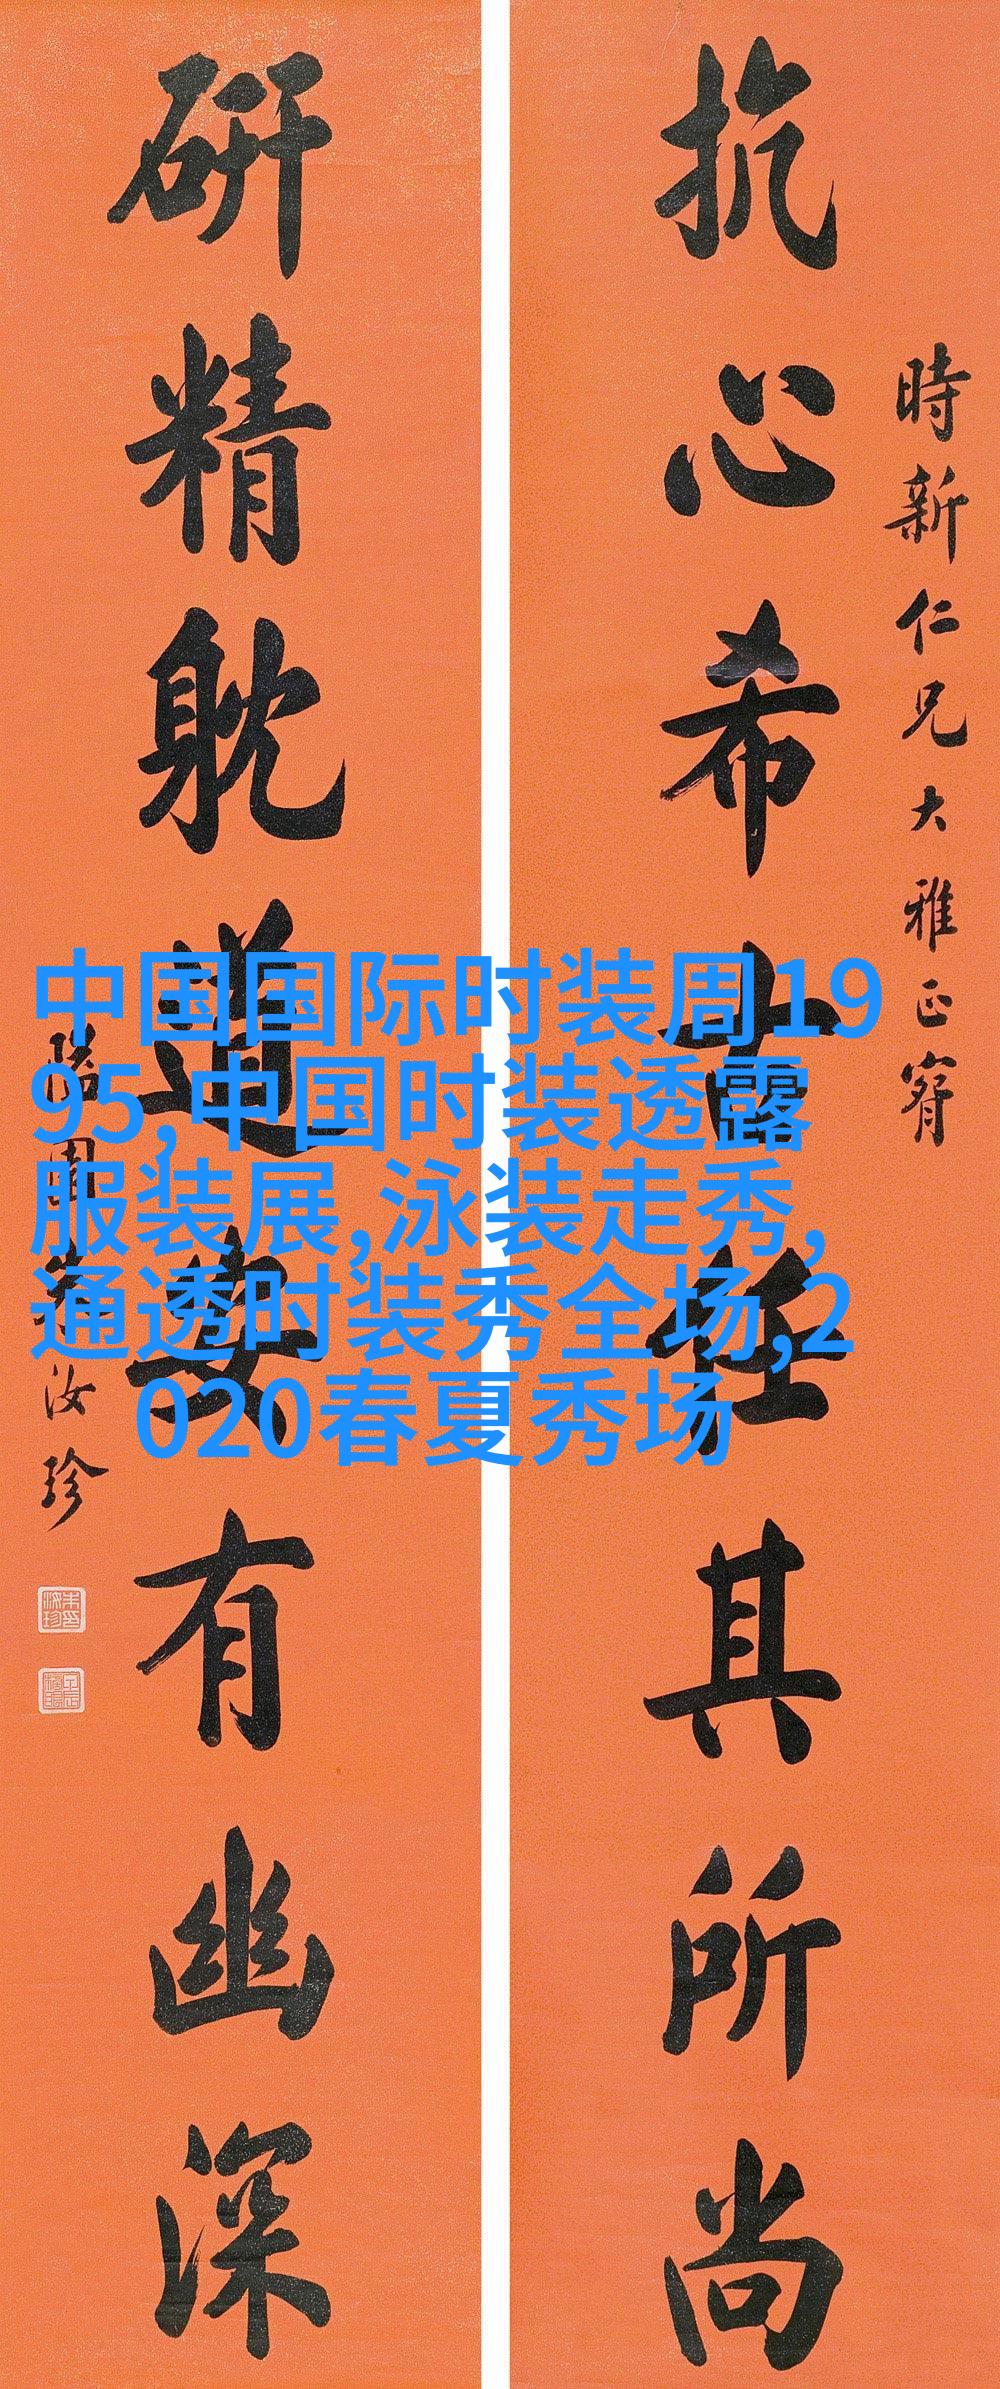 時新仁兄大雅正
抗心希古任其所尚
研精躭道安有幽深
隘園朱汝珍
中国国际时装周19
95,中国时装透露
服装展,泳装走秀,
通透时装秀全场,2
020春夏秀场